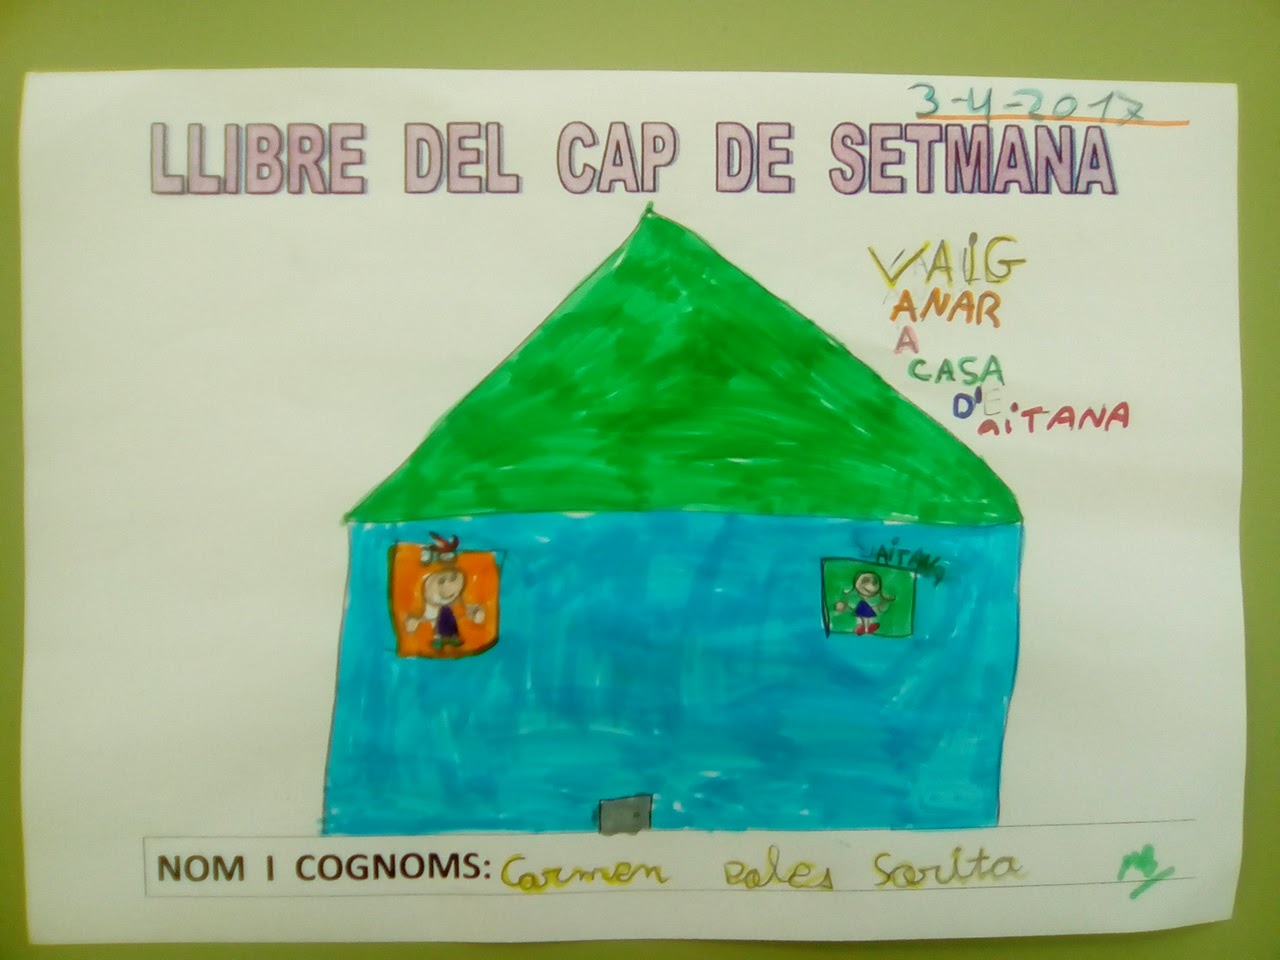 3-4-2017
LLIBRE DEL CAP DE SETMANA
VAIG
ANAR
A
CASA
D'
AiTANA
AiTANA
NOM I COGNOMS: Carmen Sarita